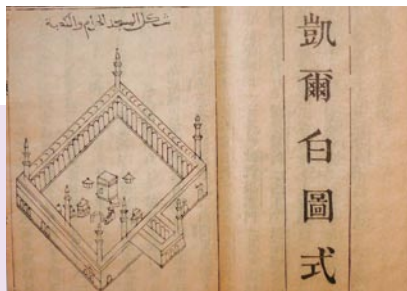 شكل المسجد الحرام والكعبة
凱爾白圖式